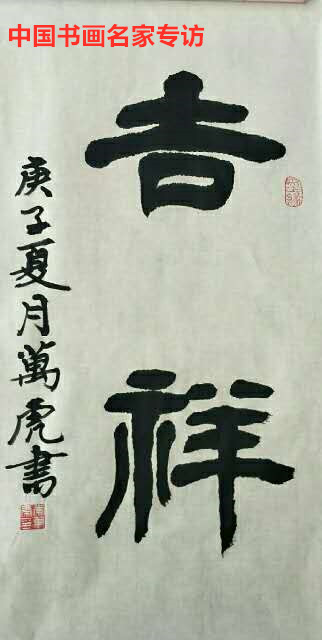 中国书画名家专访
吉祥
庚子夏月萬虎書